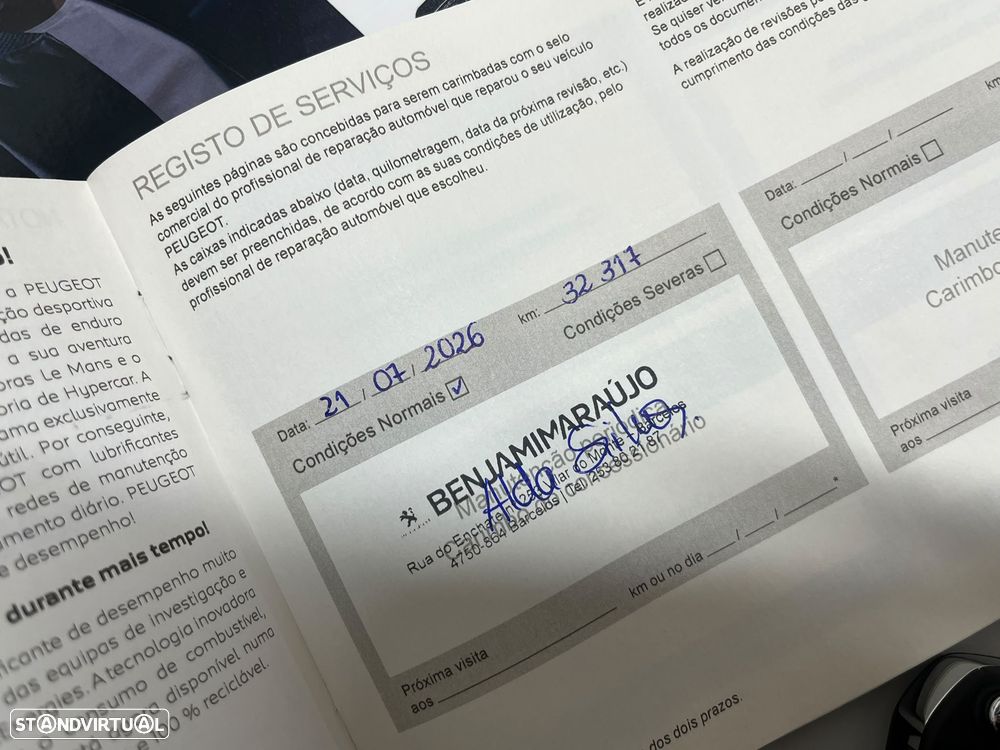 o!
a PEUGEOT
ção desportiva
das de enduro
a sua aventura
oras Le Mans e o
oria de Hypercar. A
ama exclusivamente
útil. Por conseguinte,
OT com lubrificantes
redes de manutenção
umento diário. PEUGEOT
e desempenho!
durante mais tempo!
ficante de desempenho muito
das equipas de investigação e
A tecnologia inovadora
consumo de combustível,
disponível numa
% reciclável.
REGISTO DE SERVIÇOS
As seguintes páginas são concebidas para serem carimbadas com o selo
comercial do profissional de reparação automóvel que reparou o seu veículo
PEUGEOT.
As caixas indicadas abaixo (data, quilometragem, data da próxima revisão, etc.)
devem ser preenchidas, de acordo com as suas condições de utilização, pelo
profissional de reparação automóvel que escolheu.
Data: 21 / 07 / 2026 km: 32 317
Condições Normais ✓ Condições Severas
BENJAMIMARAÚJO
Manutenção periódica
Alda Silva
Carimbo do concessionário
Próxima visita
aos km ou no dia / / *
dos dois prazos.
realiza
Se quiser ve
todos os docume
A realização de revisões p
cumprimento das condições das
Data: / / km
Condições Normais
Manute
Carimbo
Próxima visita
aos
STANDVIRTUAL